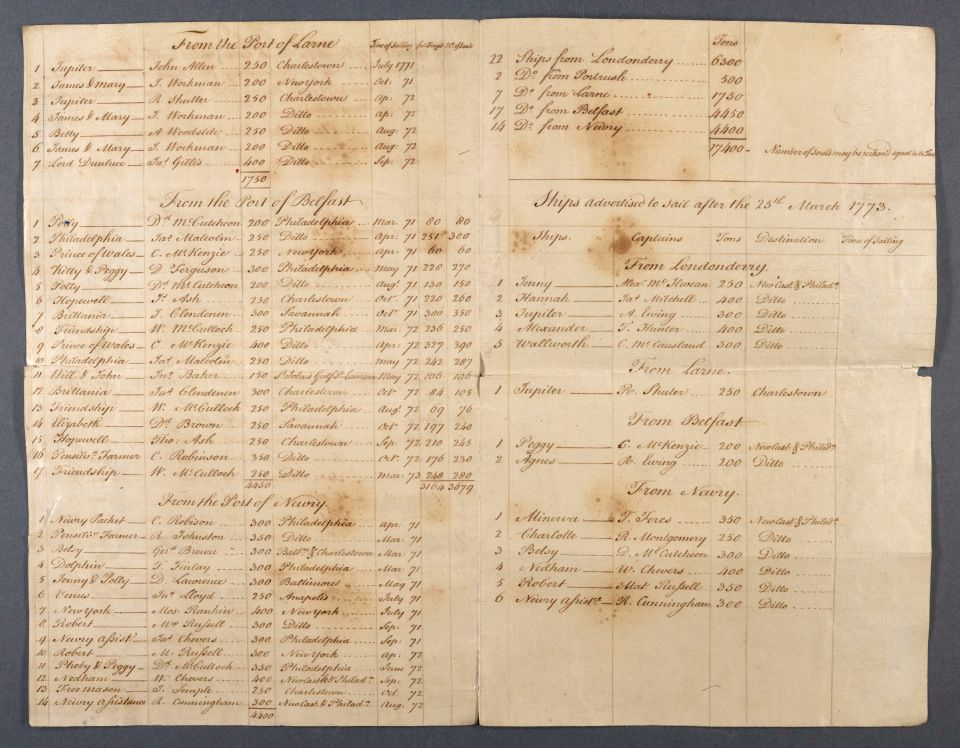 From the Port of Larne Time of Sailing full Freight No. of Souls
1 Jupiter John Allen 250 Charlestown July 1771
2 James & Mary J. Workman 200 New York Oct: 71
3 Jupiter R. Shutter 250 Charlestown Ap: 72
4 James & Mary J. Workman 200 Ditto ap: 72
5 Betty A Woodside 250 Ditto Aug: 72
6 James & Mary J. Workman 200 Ditto Aug: 72
7 Lord Dunluce Jas. Gillis 400 Ditto Sep: 72
1750
From the Port of Belfast
1 Polly Dd. McCutcheon 200 Philadelphia Mar: 71 80 80
2 Philadelphia Jas. Malcolm 250 Ditto Apr: 71 251 300
3 Prince of Wales C. McKenzie 250 New York Apr: 71 60 60
4 Kitty & Peggy D. Ferguson 300 Philadelphia May 71 220 270
5 Polly Dd. McCutcheon 200 Ditto Augt. 71 130 150
6 Hopewell Js. Ash 250 Charlestown Oct: 71 220 260
7 Brittania J. Clendenen 300 Savannah Oct: 71 300 350
8 Friendship W. McCulloch 250 Philadelphia Mar: 72 236 250
9 Prince of Wales C. McKenzie 400 Ditto Apr: 72 327 390
10 Philadelphia Jas. Malcolm 250 Ditto May 72 242 287
11 Will & John Jno. Baker 150 St. Johns Gulf St. Laurence May 72 106 106
12 Brittania Jas. Clendenen 300 Charlestown Oct: 72 84 105
13 Friendship W. McCulloch 250 Philadelphia Augt. 72 69 76
14 Elizabeth Dd. Brown 250 Savannah Oct: 72 197 240
15 Hopewell Tho: Ash 250 Charlestown Sep: 72 210 245
16 Pensilva. Farmer C. Robinson 350 Ditto Oct: 72 176 230
17 Friendship W. McCulloch 250 Ditto Mar: 73 248 280
4450 3164 3679
From the Port of Newry
1 Newry Packet C. Robison 300 Philadelphia Apr: 71
2 Pensilva. Farmer R. Johnston 350 Ditto Mar: 71
3 Betsy Geo. Brown 300 Baltre. & Charlestown Mar: 71
4 Dolphin T. Finlay 300 Philadelphia Mar: 71
5 Jenny & Polly D. Lawrence 300 Baltimore May 71
6 Venus Jno. Lloyd 250 Anapolis July 71
7 New York Mos. Rankin 400 New York July 71
8 Robert Mw. Russell 300 Ditto Sep: 71
9 Newry Assist. Jas. Chevers 300 Philadelphia Sep: 71
10 Robert M. Russell 300 New York ap: 72
11 Pheby & Peggy Dd. McCulloch 350 Philadelphia June 72
12 Nedham W. Chevers 400 New Castle & Philada. Sep: 72
13 Free Mason J. Semple 250 Charlestown Oct: 72
14 Newry Assistance R. Cunningham 300 New Cast. & Philada. Aug: 72
4400
Tons
22 Ships from Londonderry 6300
2 Do. from Portrush 500
7 Do. from Larne 1750
17 Do. from Belfast 4450
14 Do. from Newry 4400
17400 Number of souls may be reckon'd equal to the Tons
Ships advertised to sail after the 25th March 1773.
Ships. Captains Tons Destination Time of Sailing
From Londonderry.
1 Jenny Alexr. McIlvean 250 New Cast. & Philada.
2 Hannah Jas. Mitchell 400 Ditto
3 Jupiter A. Ewing 300 Ditto
4 Alexander T. Hunter 400 Ditto
5 Wallworth C. McCausland 300 Ditto
From Larne.
1 Jupiter R. Shuter 250 Charlestown
From Belfast
1 Peggy C. McKenzie 200 New Cast. & Philada.
2 Agnes R. Ewing 200 Ditto
From Newry.
1 Minerva T. Fores 350 New Cast. & Philada.
2 Charlotte R. Montgomery 250 Ditto
3 Betsy D. McCutcheon 300 Ditto
4 Nedham W. Chevers 400 Ditto
5 Robert Mat. Russell 350 Ditto
6 Newry Assisce. R. Cunningham 300 Ditto